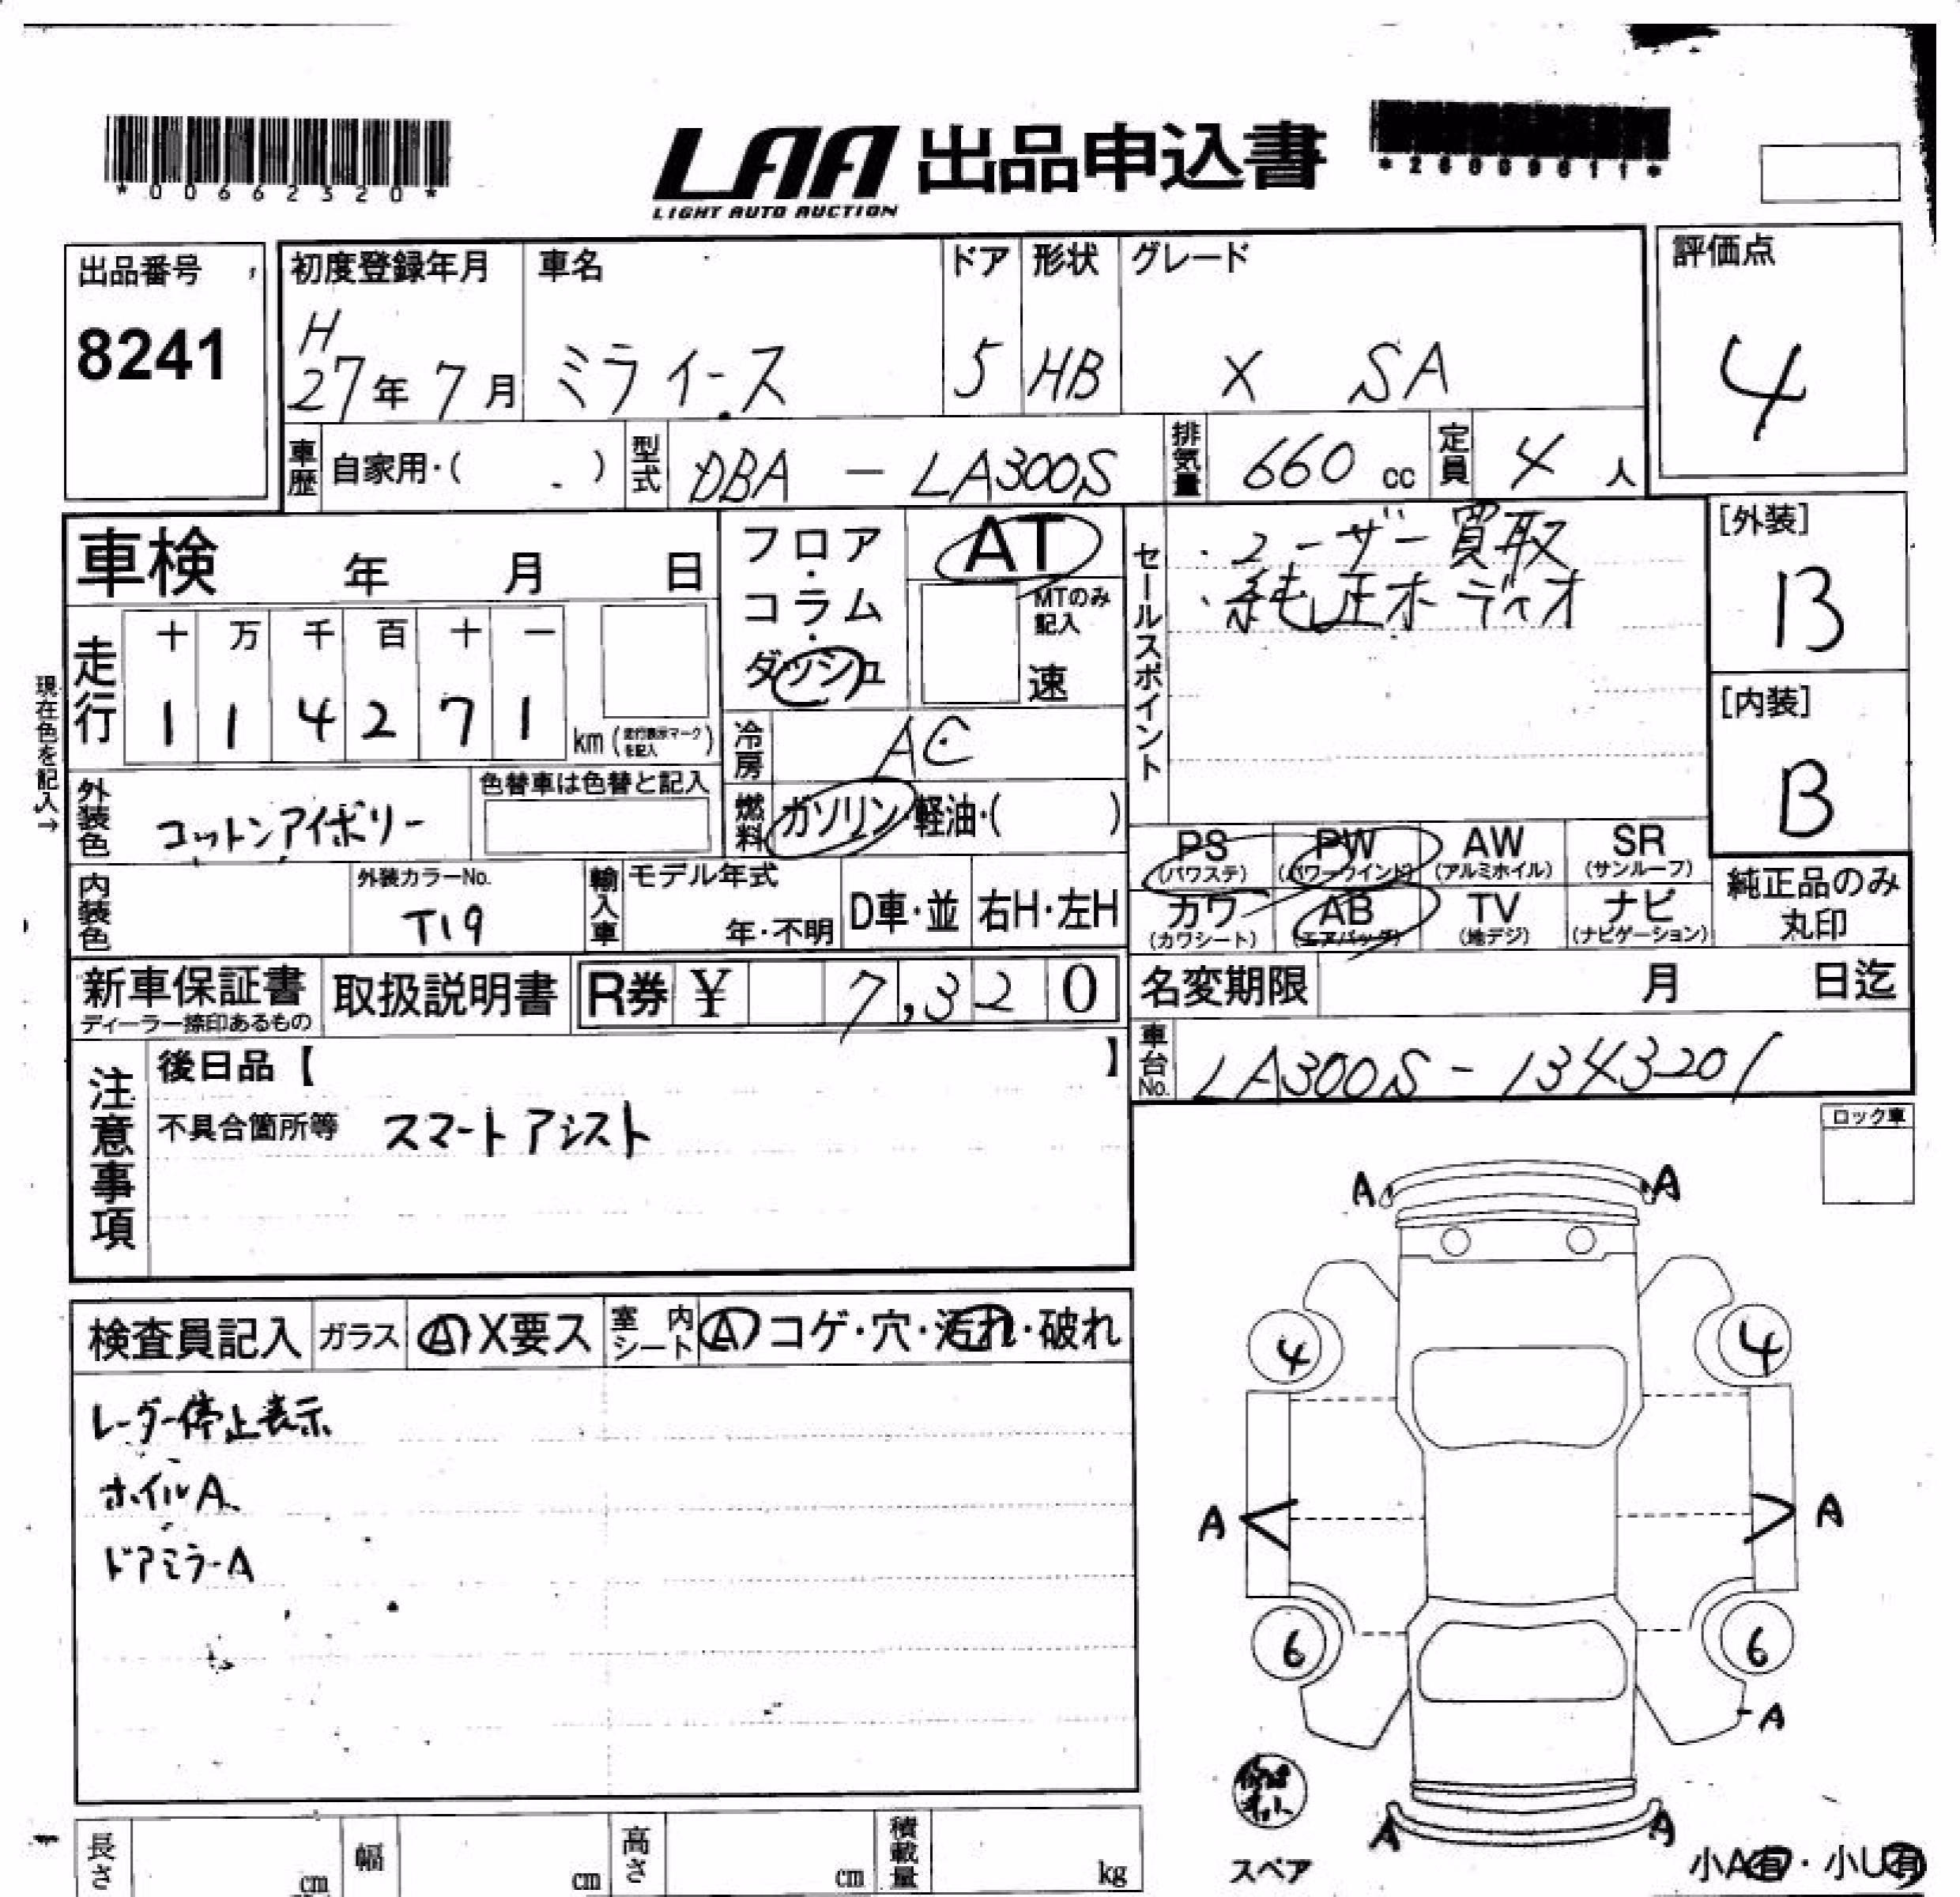 *00662320*
LAA 出品申込書
LIGHT AUTO AUCTION
出品番号
8241
初度登録年月
H
27年 7月
車名
ミライース
ドア
5
形状
HB
グレード
X SA
評価点
4
車歴
自家用・( )
型式
DBA - LA300S
排気量
660 cc
定員
4 人
車検 年 月 日
フロア・コラム・ダッシュ
AT
MTのみ記入
速
セールスポイント
・ユーザー買取
・純正オーディオ
[外装]
B
[内装]
B
現在色を記入→
走行
十 万 千 百 十 一
1 1 4 2 7 1
km (走行表示マークを記入)
冷房
AC
燃料
ガソリン・軽油・( )
外装色
コットンアイボリー
色替車は色替と記入
PS (パワステ)
PW (パワーウインド)
AW (アルミホイル)
SR (サンルーフ)
カワ (カワシート)
AB (エアバッグ)
TV (地デジ)
ナビ (ナビゲーション)
純正品のみ
丸印
内装色
外装カラーNo.
T19
輸入車
モデル年式
年・不明
D車・並
右H・左H
新車保証書
ディーラー捺印あるもの
取扱説明書
R券 ¥ 7,320
名変期限 月 日迄
車台No.
LA300S-1343201
注意事項
後日品【 】
不具合箇所等 スマートアシスト
ロック車
検査員記入
ガラス
A X要ス
室内シート
A コゲ・穴・汚れ・破れ
レーダー停止表示
ホイルA
ドアミラーA
A A
4 4
A A
6 6
A
A A
スペア
小A有・小U有
長さ cm
幅 cm
高さ cm
積載量 kg